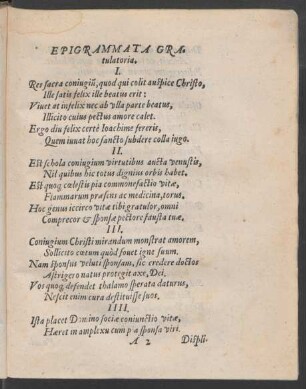 EPIGRAMMATA GRA-
tulatoria.
I.
Res sacra coniugiũ, quod qui colit auspice Christo,
Ille satis felix ille beatus erit;
Viuet at infelix nec ab vlla parte beatus,
Illicito cuius pectus amore calet.
Ergo diu felix certè Ioachime fereris,
Quem iuuat hoc sancto subdere colla iugo.
II.
Est schola coniugium virtutibus aucta venustis,
Nil quibus hic totus dignius orbis habet.
Est quoq́ cœlestis pia commonefactio vitæ,
Flammarum præsens ac medicina, torus.
Hoc genus iccirco vitæ tibi gratulor, omni
Comprecor & sponsæ pectore fausta tuæ.
III.
Coniugium Christi mirandum monstrat amorem,
Sollicito cœtum quòd fouet igne suum.
Nam sponsus veluti sponsam, sic credere doctos
Astrigero natus protegit axe, Dei.
Vos quoq́ defendet thalamo sperata daturus,
Nescit enim cura destituisse suos.
IIII.
Ista placet Domino sociæ coniunctio vitæ,
Hæret in amplexu cum pia sponsa viri.
A 2 Displi-